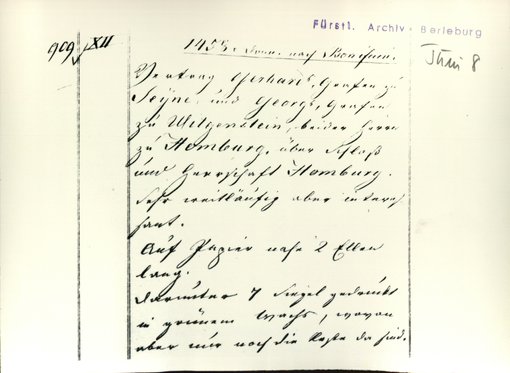 Fürstl. Archiv Berleburg
909 XII
Juni 8
1455. Donn. nach Bonifacii.
Vertrag Gerhards, Grafen zu
Seyne, und Georgs, Grafen
zu Witgenstein, beider Herrn
zu Homburg, über Schloß
und Herrschaft Homburg.
Sehr weitläufig aber interes
sant.
Auf Papier nahe 2 Ellen
lang.
Darunter 7 Siegel gedruckt
in grünem Wachs, wovon
aber nur noch die Reste da sind.